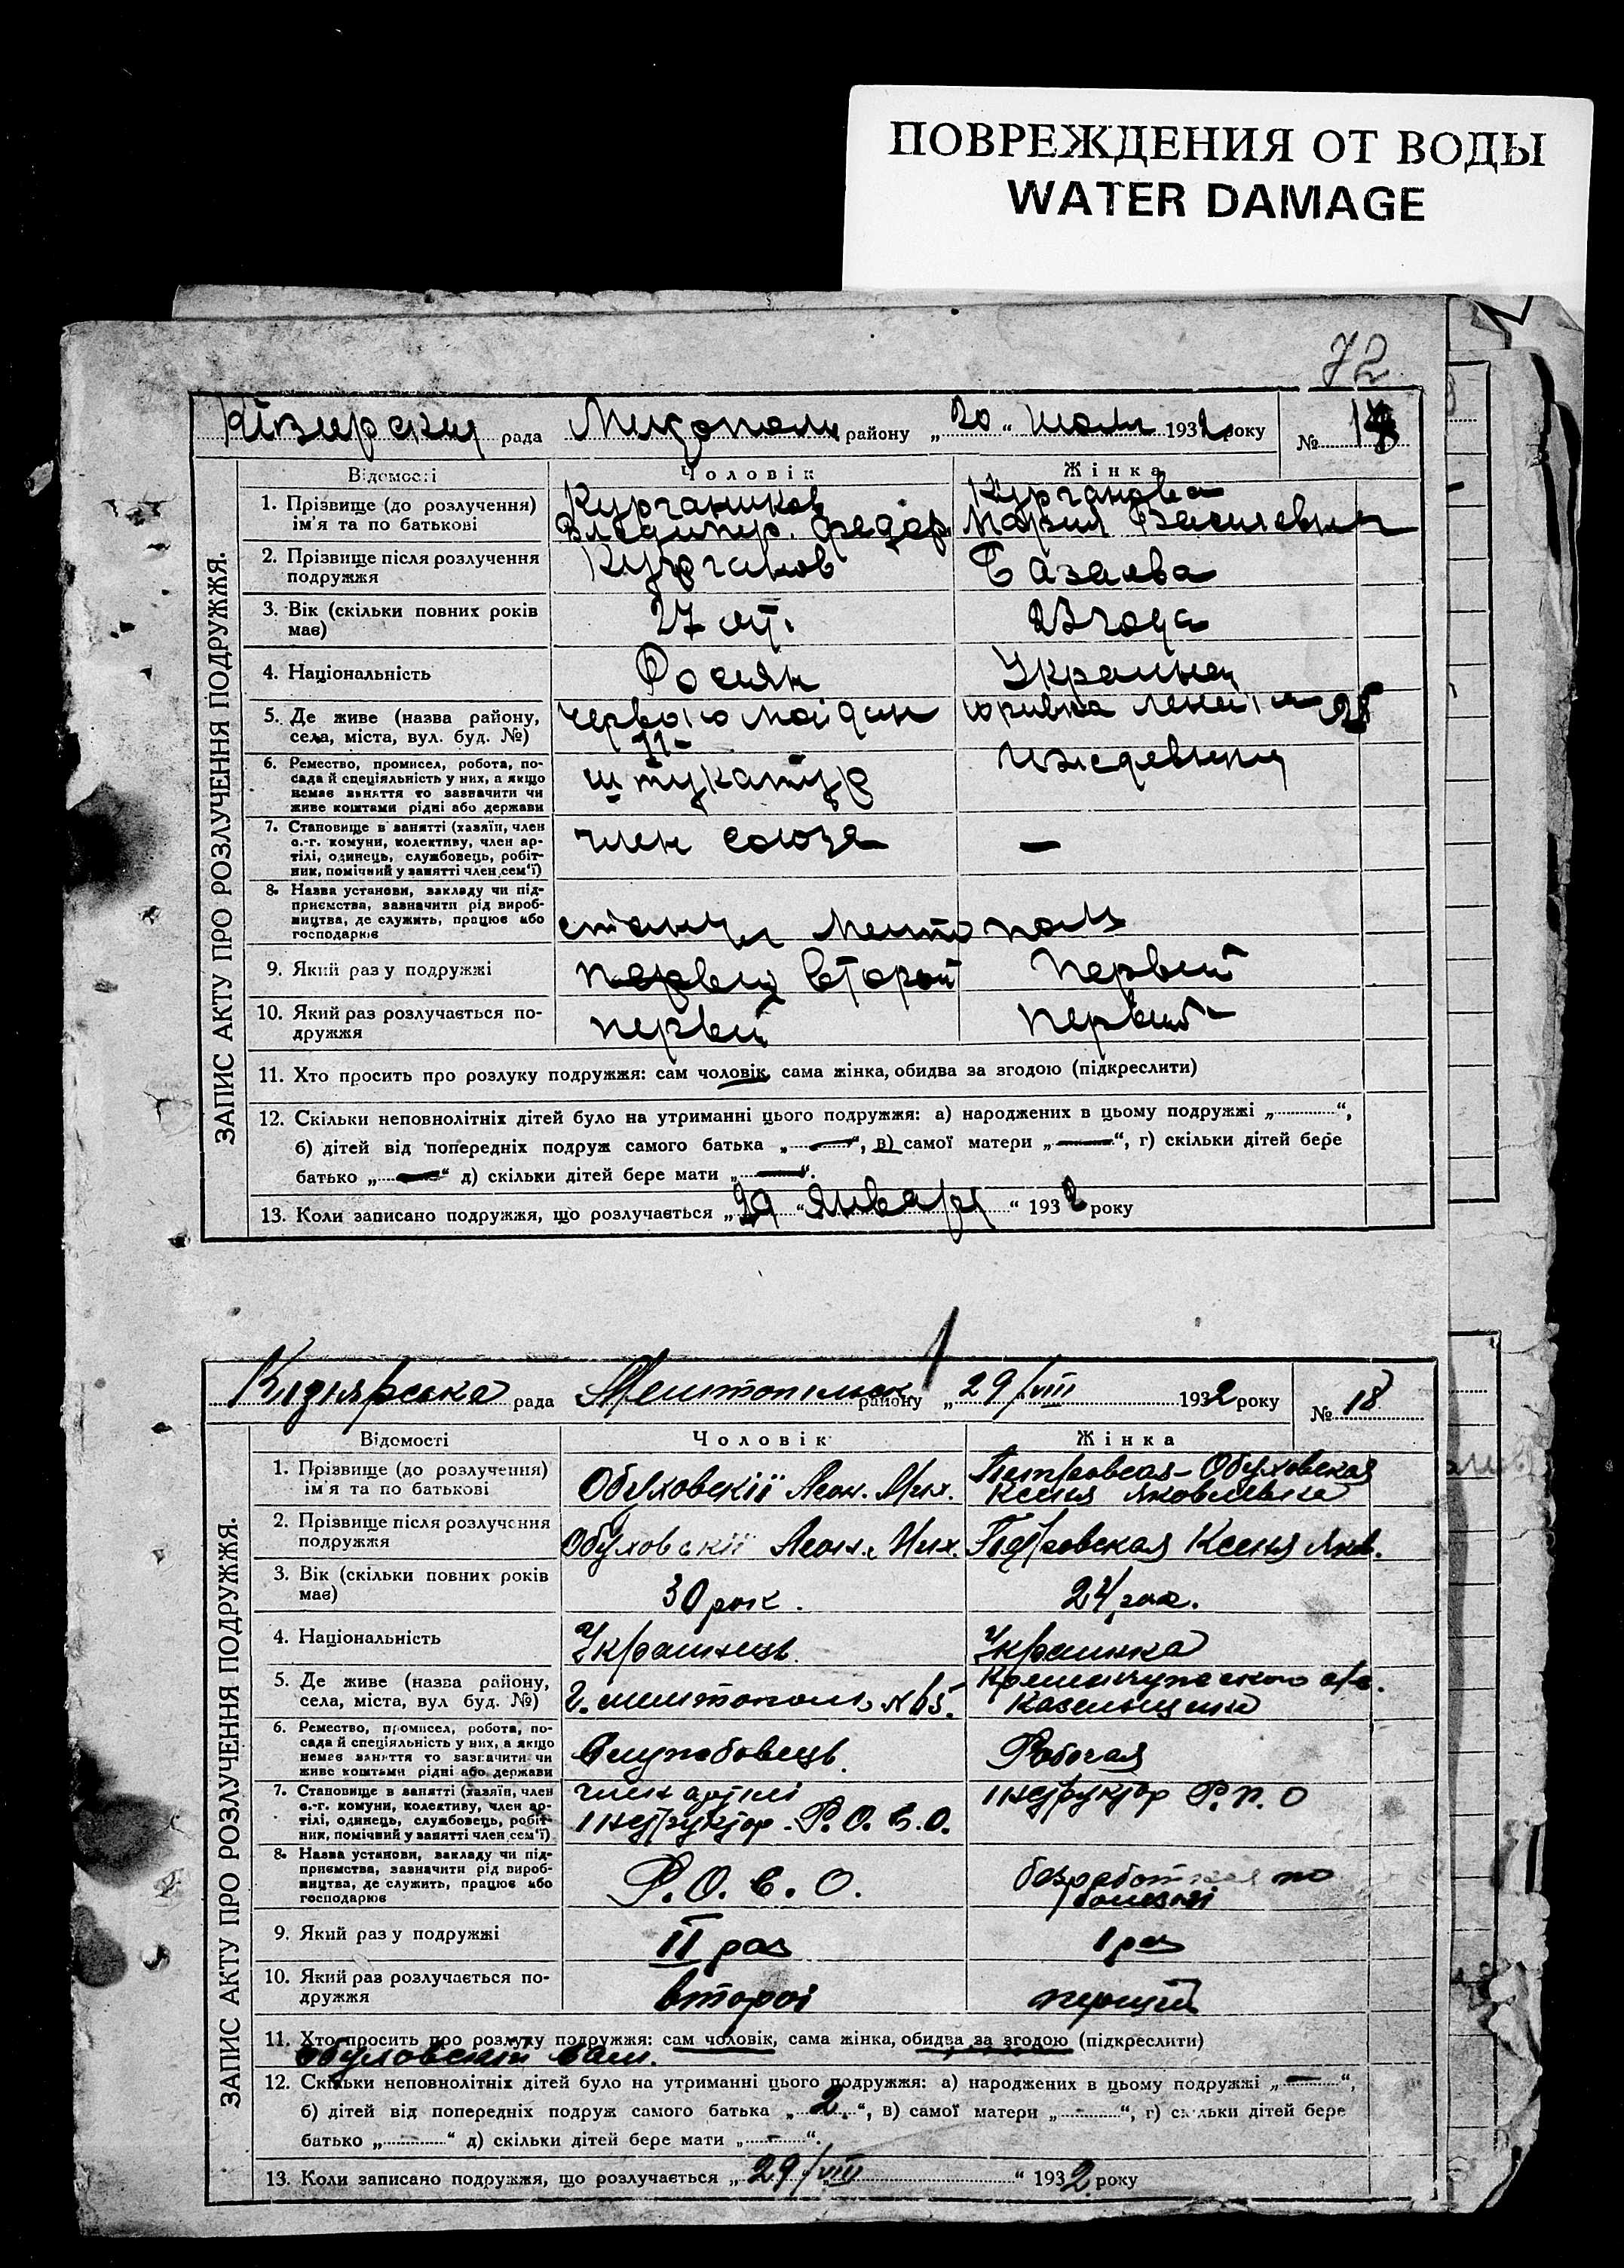 ПОВРЕЖДЕНИЯ ОТ ВОДЫ
WATER DAMAGE
72
рада району „20“ 1932 року № 
ЗАПИС АКТУ ПРО РОЗЛУЧЕННЯ ПОДРУЖЖЯ.
Відомості Чоловік Жінка
1. Прізвище (до розлучення)
ім'я та по батькові
Владимир. Федор.
Мария
2. Прізвище після розлучення
подружжя
Курганов
3. Вік (скільки повних років
має)
27 23 года
4. Національність
Росиян
5. Де живе (назва району,
села, міста, вул. буд. №)
6. Ремество, промисел, робота, по-
сада й спеціяльність у них, а якщо
немає заняття то зазначити чи
живе коштами рідні або держави
штукатур
7. Становище в занятті (хазяїн, член
с.-г. комуни, колективу, член ар-
тілі, одинець, службовець, робіт-
ник, помічний у занятті член сем'ї)
член союза —
8. Назва установи, закладу чи під-
приємства, зазначити рід вироб-
ництва, де служить, працює або
господарює
9. Який раз у подружжі
второй первый
10. Який раз розлучається по-
дружжя
первый первый
11. Хто просить про розлуку подружжя: сам чоловік, сама жінка, обидва за згодою (підкреслити)
12. Скільки неповнолітніх дітей було на утриманні цього подружжя: а) народжених в цьому подружжі „ “,
б) дітей від попередніх подруж самого батька „—“, в) самої матери „—“, г) скільки дітей бере
батько „—“ д) скільки дітей бере мати „—“.
13. Коли записано подружжя, що розлучається „ “ Января “ 1932 року
рада району „29/VIII 1932 року № 18
ЗАПИС АКТУ ПРО РОЗЛУЧЕННЯ ПОДРУЖЖЯ.
Відомості Чоловік Жінка
1. Прізвище (до розлучення)
ім'я та по батькові
Обуховскій Леон. Мих.
Петровская-Обуховская
Ксения Яковлевна
2. Прізвище після розлучення
подружжя
Обуховскій Леон. Мих. Петровская Ксения Яков.
3. Вік (скільки повних років
має)
30 рок. 24 рок.
4. Національність
Українець Украинка
5. Де живе (назва району,
села, міста, вул буд. №)
6. Ремество, промисел, робота, по-
сада й спеціяльність у них, а якщо
немає заняття то зазначити чи
живе коштами рідні або держави
Службовець. Рабочая
7. Становище в занятті (хазяїн, член
с.-г. комуни, колективу, член ар-
тілі, одинець, службовець, робіт-
ник, помічний у занятті член сем'ї)
член артілі
інструктор Р.О.С.О.
інструктор Р.П.О
8. Назва установи, закладу чи під-
приємства, зазначити рід вироб-
ництва, де служить, працює або
господарює
Р.О.С.О.
безработная по
болезні
9. Який раз у подружжі
II раз 1 раз
10. Який раз розлучається по-
дружжя
второі перший
11. Хто просить про розлуку подружжя: сам чоловік, сама жінка, обидва за згодою (підкреслити)
Обуховский сам.
12. Скільки неповнолітніх дітей було на утриманні цього подружжя: а) народжених в цьому подружжі „—“,
б) дітей від попередніх подруж самого батька „2.“, в) самої матери „ “, г) скільки дітей бере
батько „ “ д) скільки дітей бере мати „-“.
13. Коли записано подружжя, що розлучається „29/VIII “ 1932 року